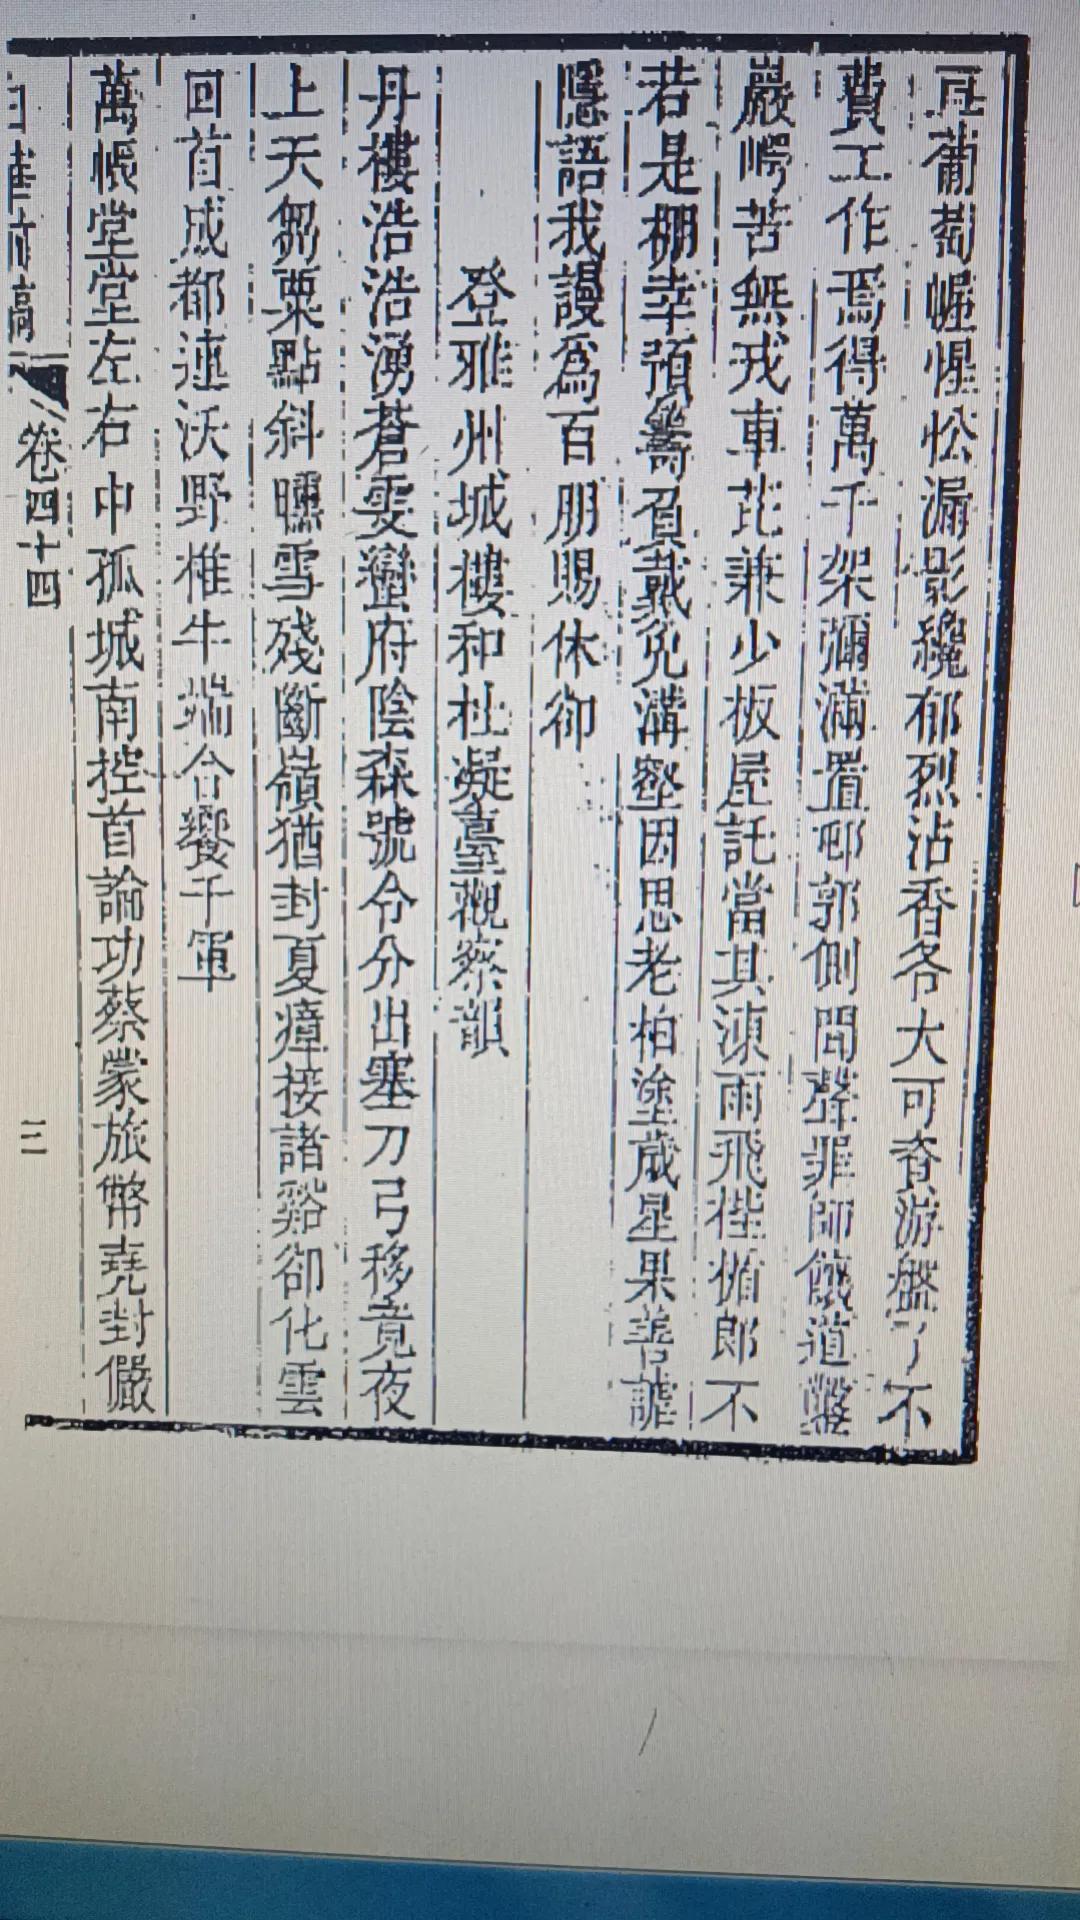 葡萄幄惺忪漏影纔郁烈沾香各大可賚游盤了不
費工作焉得萬千架彌滿置邨郭側間聲罪師餽道
巖嶀苦無戎車茈兼少板屋託當其涷雨飛梐楯郎不
若是棚幸預籌負戴免溝壑因思老柏塗歲星果善謔
隱語我謾為百朋賜休卻
登雅州城樓和杜凝臺觀察韻
丹樓浩浩湧蒼雯蠻府陰森號令分出塞刀弓移竟夜
上天芻粟點斜曛雪殘斷嶺猶封夏瘴接諸谿卻化雲
回首成都連沃野椎牛端合饗千軍
萬帳堂堂左右中孤城南控首論功蔡蒙旅幣堯封儼
卷四十四
三